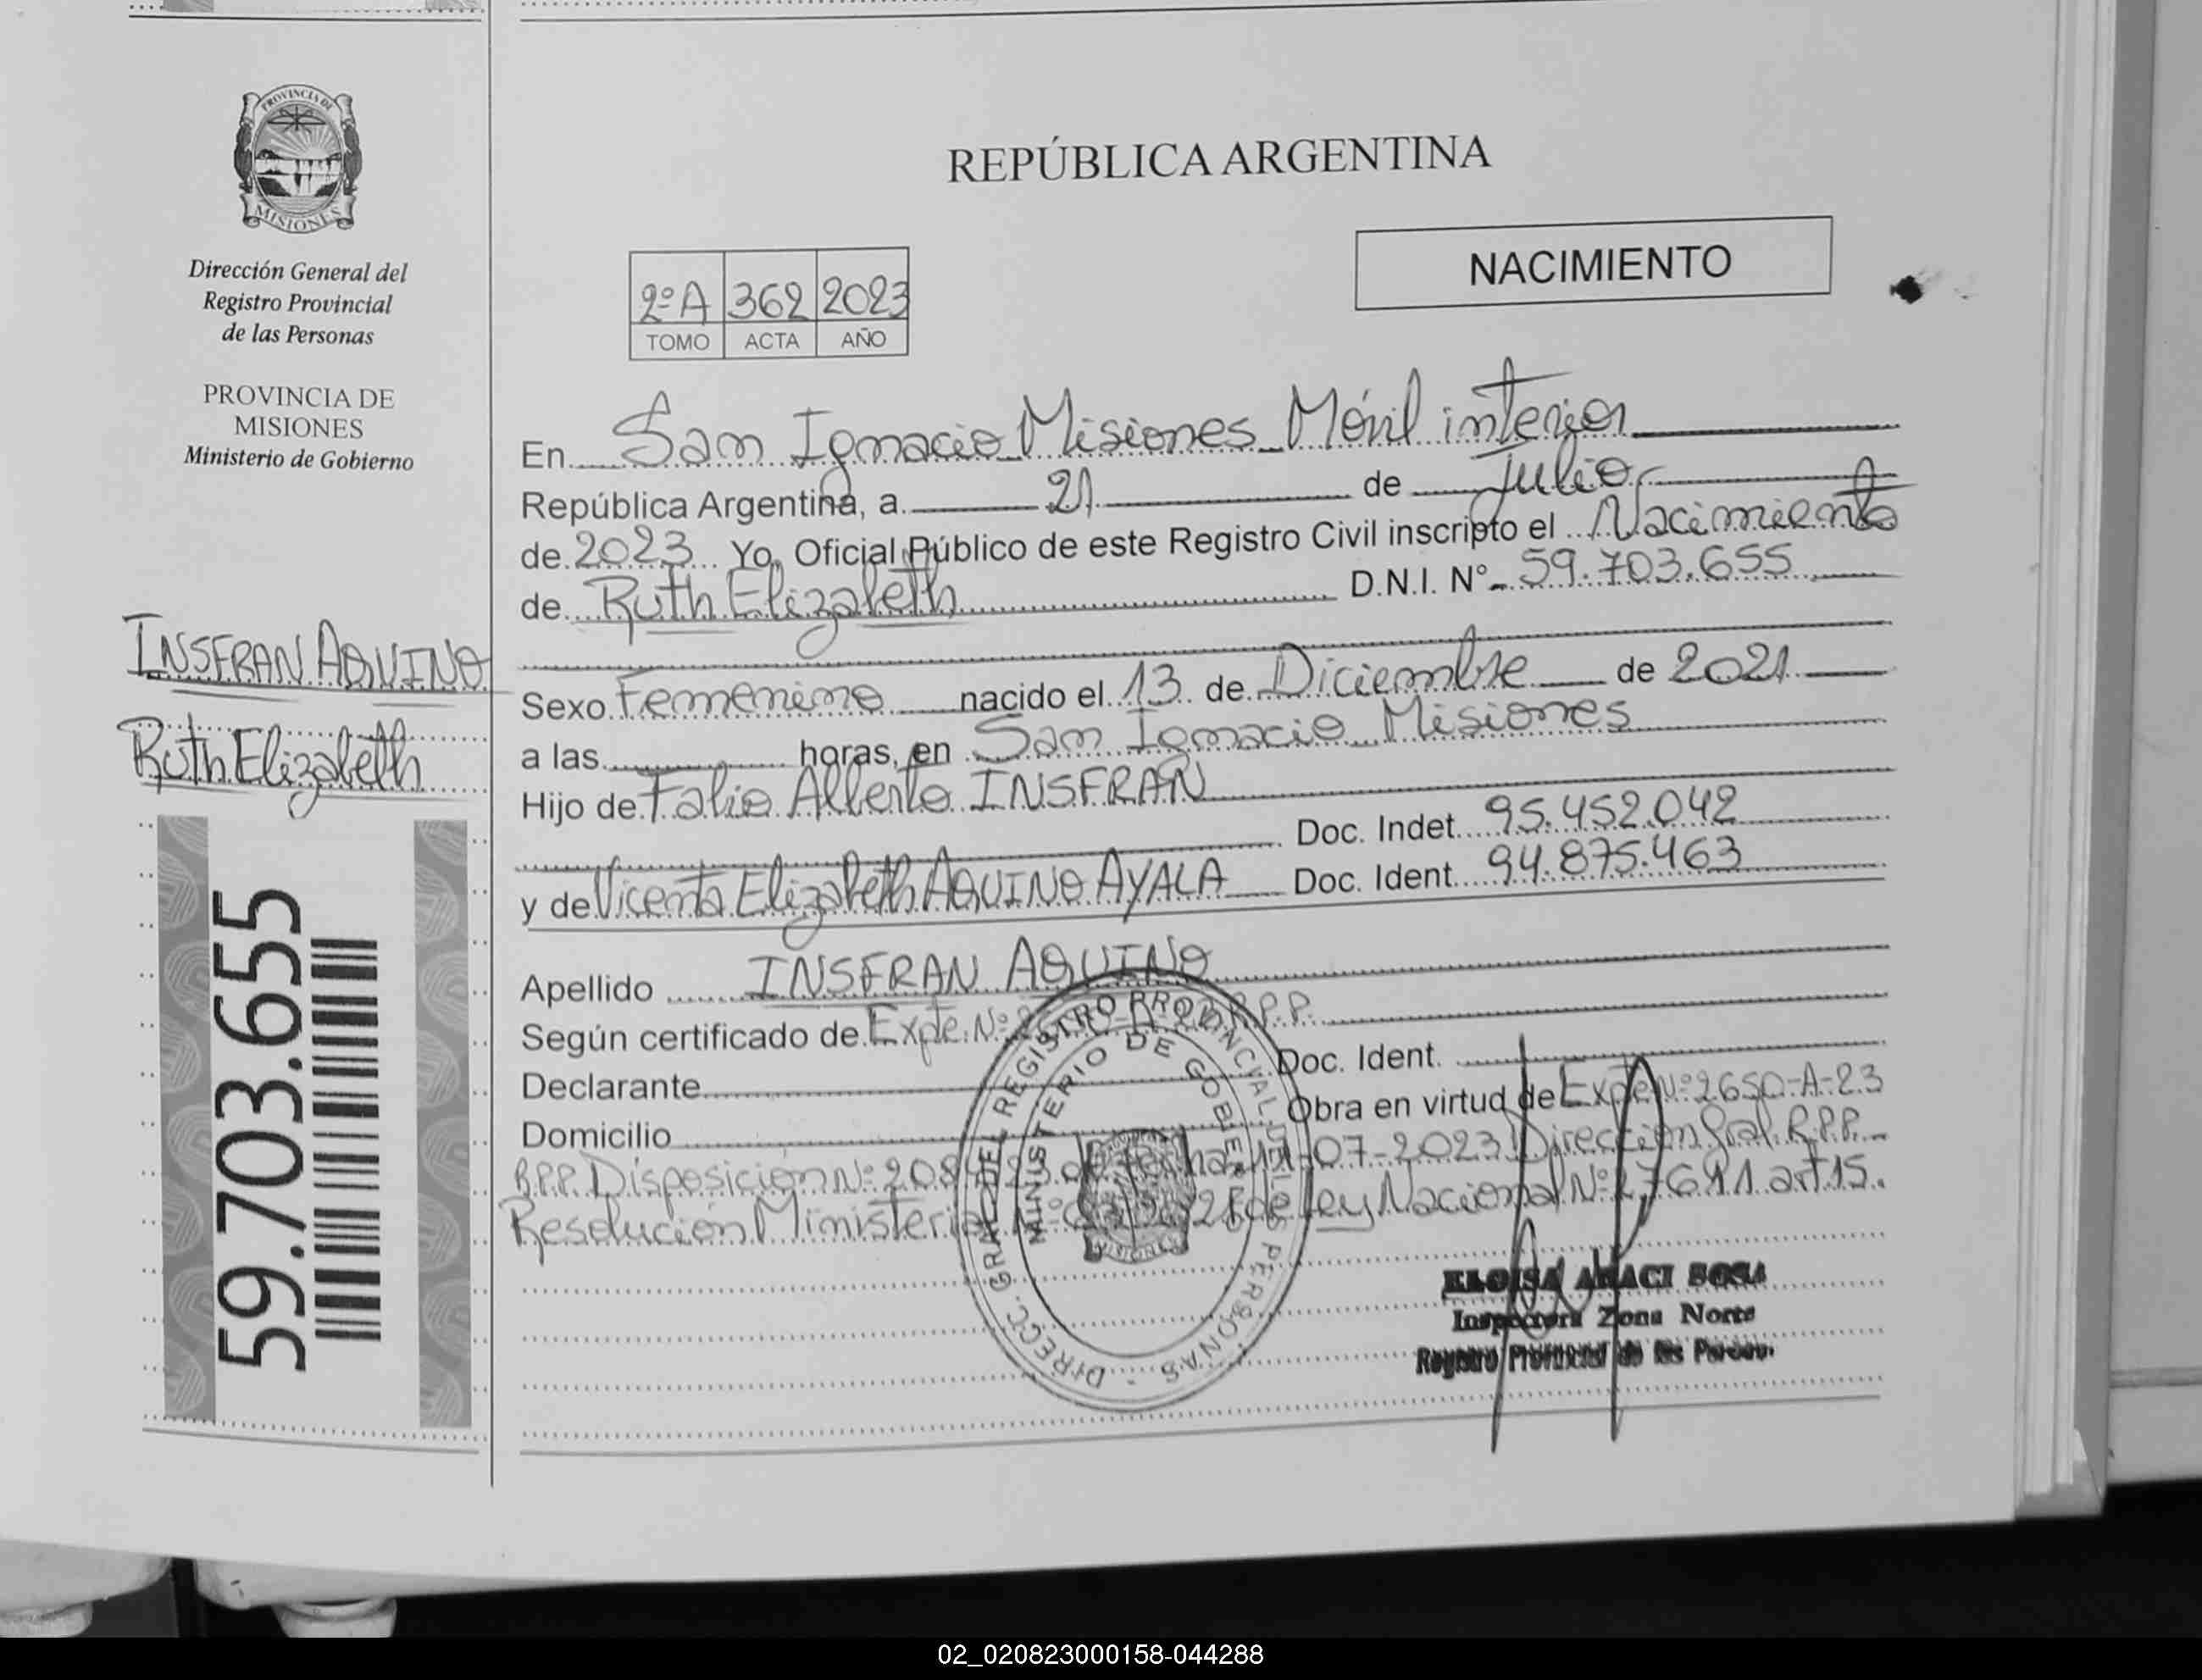 PROVINCIA DE
MISIONES
Dirección General del
Registro Provincial
de las Personas
PROVINCIA DE
MISIONES
Ministerio de Gobierno
INSFRAN AQUINO
Ruth Elizabeth
59.703.655
REPÚBLICA ARGENTINA
NACIMIENTO
2º A 362 2023
TOMO ACTA AÑO
En San Ignacio Misiones Móvil interior
República Argentina, a 21 de Julio
de 2023 Yo, Oficial Público de este Registro Civil inscripto el Nacimiento
de Ruth Elizabeth D.N.I. Nº 59.703.655
Sexo Femenino nacido el 13 de Diciembre de 2021
a las horas, en San Ignacio Misiones
Hijo de Fabio Alberto INSFRAN
Doc. Indet. 95.452.042
y de Vicenta Elizabeth AQUINO AYALA Doc. Ident. 94.875.463
Apellido INSFRAN AQUINO
Según certificado de Expte. Nº R.P.P.
Declarante Doc. Ident.
Domicilio Obra en virtud de Expte Nº 2650-A-23
R.P.P. Disposición Nº 208 23 de fecha 07-2023 Dirección Gral. R.P.P.
Resolución Ministerial de Ley Nacional Nº 27611 art 15.
DIRECC. GRAL. DEL REGISTRO PROVINCIAL DE LAS PERSONAS
MINISTERIO DE GOBIERNO
MISIONES
ELOISA ANACI SOSA
Inspectora Zona Norte
Registro Provincial de las Person.
02_020823000158-044288